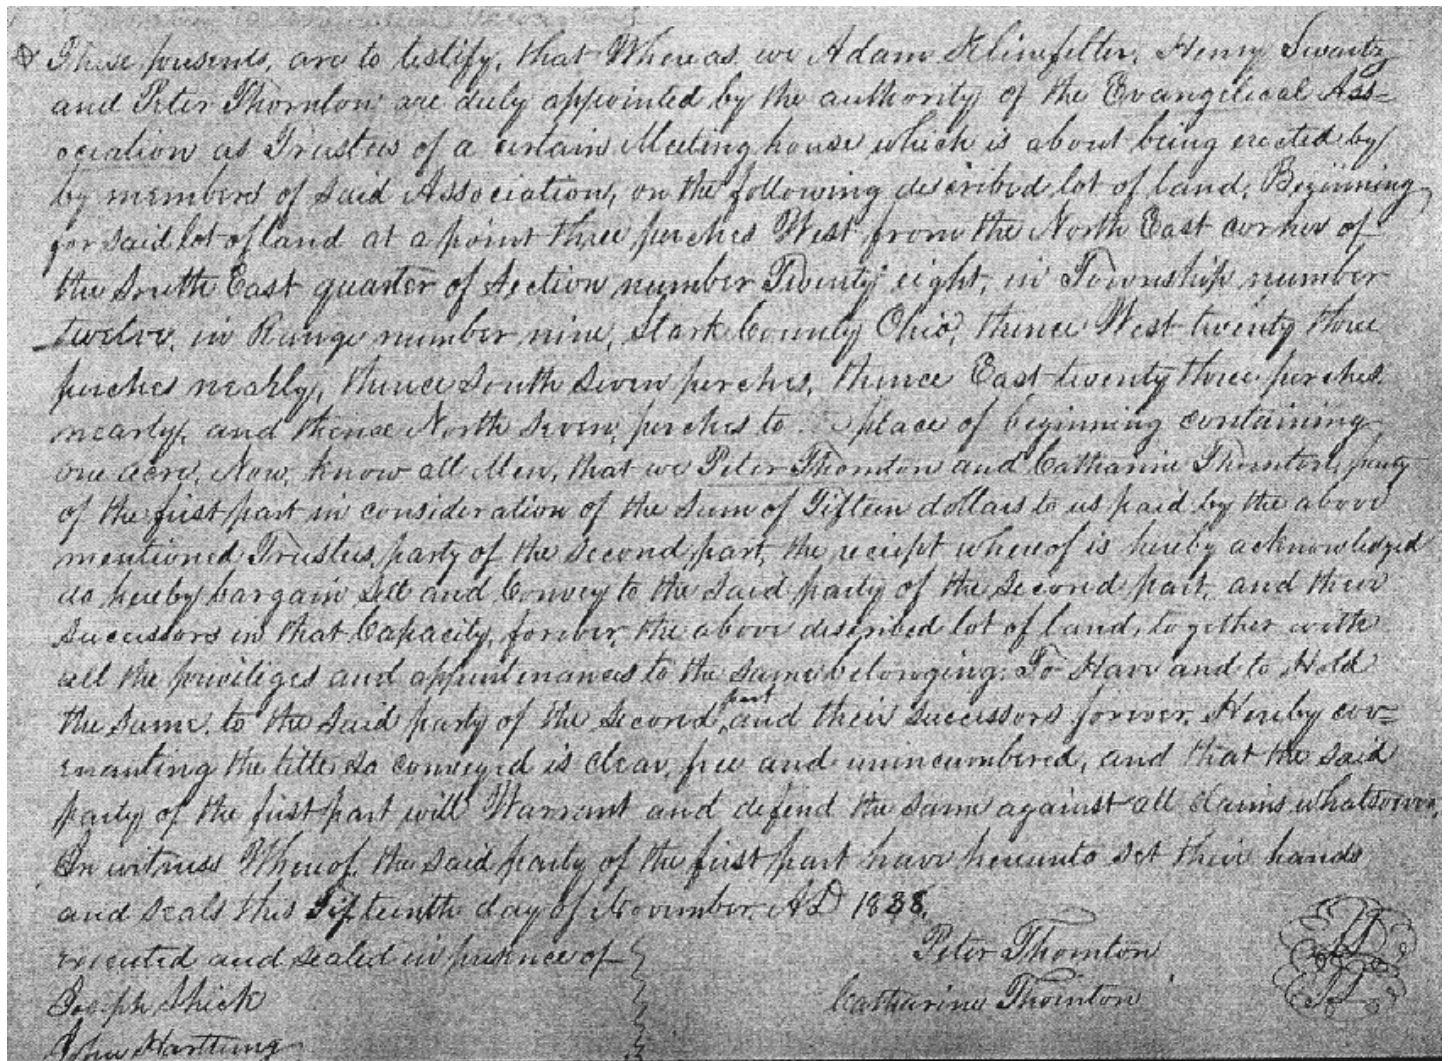 These presents, are to testify, that Whereas we Adam Klinefelter, Henry Swartz
and Peter Thornton are duly appointed by the authority of the Evangelical Ass=
ociation as Trustees of a certain Meeting house which is about being erected by
by members of said Association, on the following described lot of land, Beginning
for said lot of land at a point three perches West from the North East corner of
the South East quarter of Section number Twenty eight, in Township number
twelve, in Range number nine, Stark County Ohio, thence West twenty three
perches nearly, thence South Seven perches, thence East twenty three perches
nearly, and thence North Seven perches to place of beginning containing
one acre, Now, know all Men, that we Peter Thornton and Catharine Thornton, party
of the first part in consideration of the Sum of Fifteen dollars to us paid by the above
mentioned Trustees, party of the second part, the reciept whereof is hereby acknowledged
do hereby bargain Sell and Convey to the said party of the Second part, and their
Successors in that Capacity, forever, the above described lot of land, together with
all the priviliges and appurtenances to the same belonging; To Have and to Hold
the same, to the said party of the Second part and their Successors forever, Hereby cov=
enanting the title so conveyed is clear, free and unincumbered, and that the said
party of the first part will Warrant and defend the same against all claims whatsoever,
In witness Whereof, the said party of the first part have hereunto set their hands
and seals this Fifteenth day of November, AD 1838,
executed and sealed in presence of Peter Thornton
Joseph Shick Catharine Thornton
John Harttung